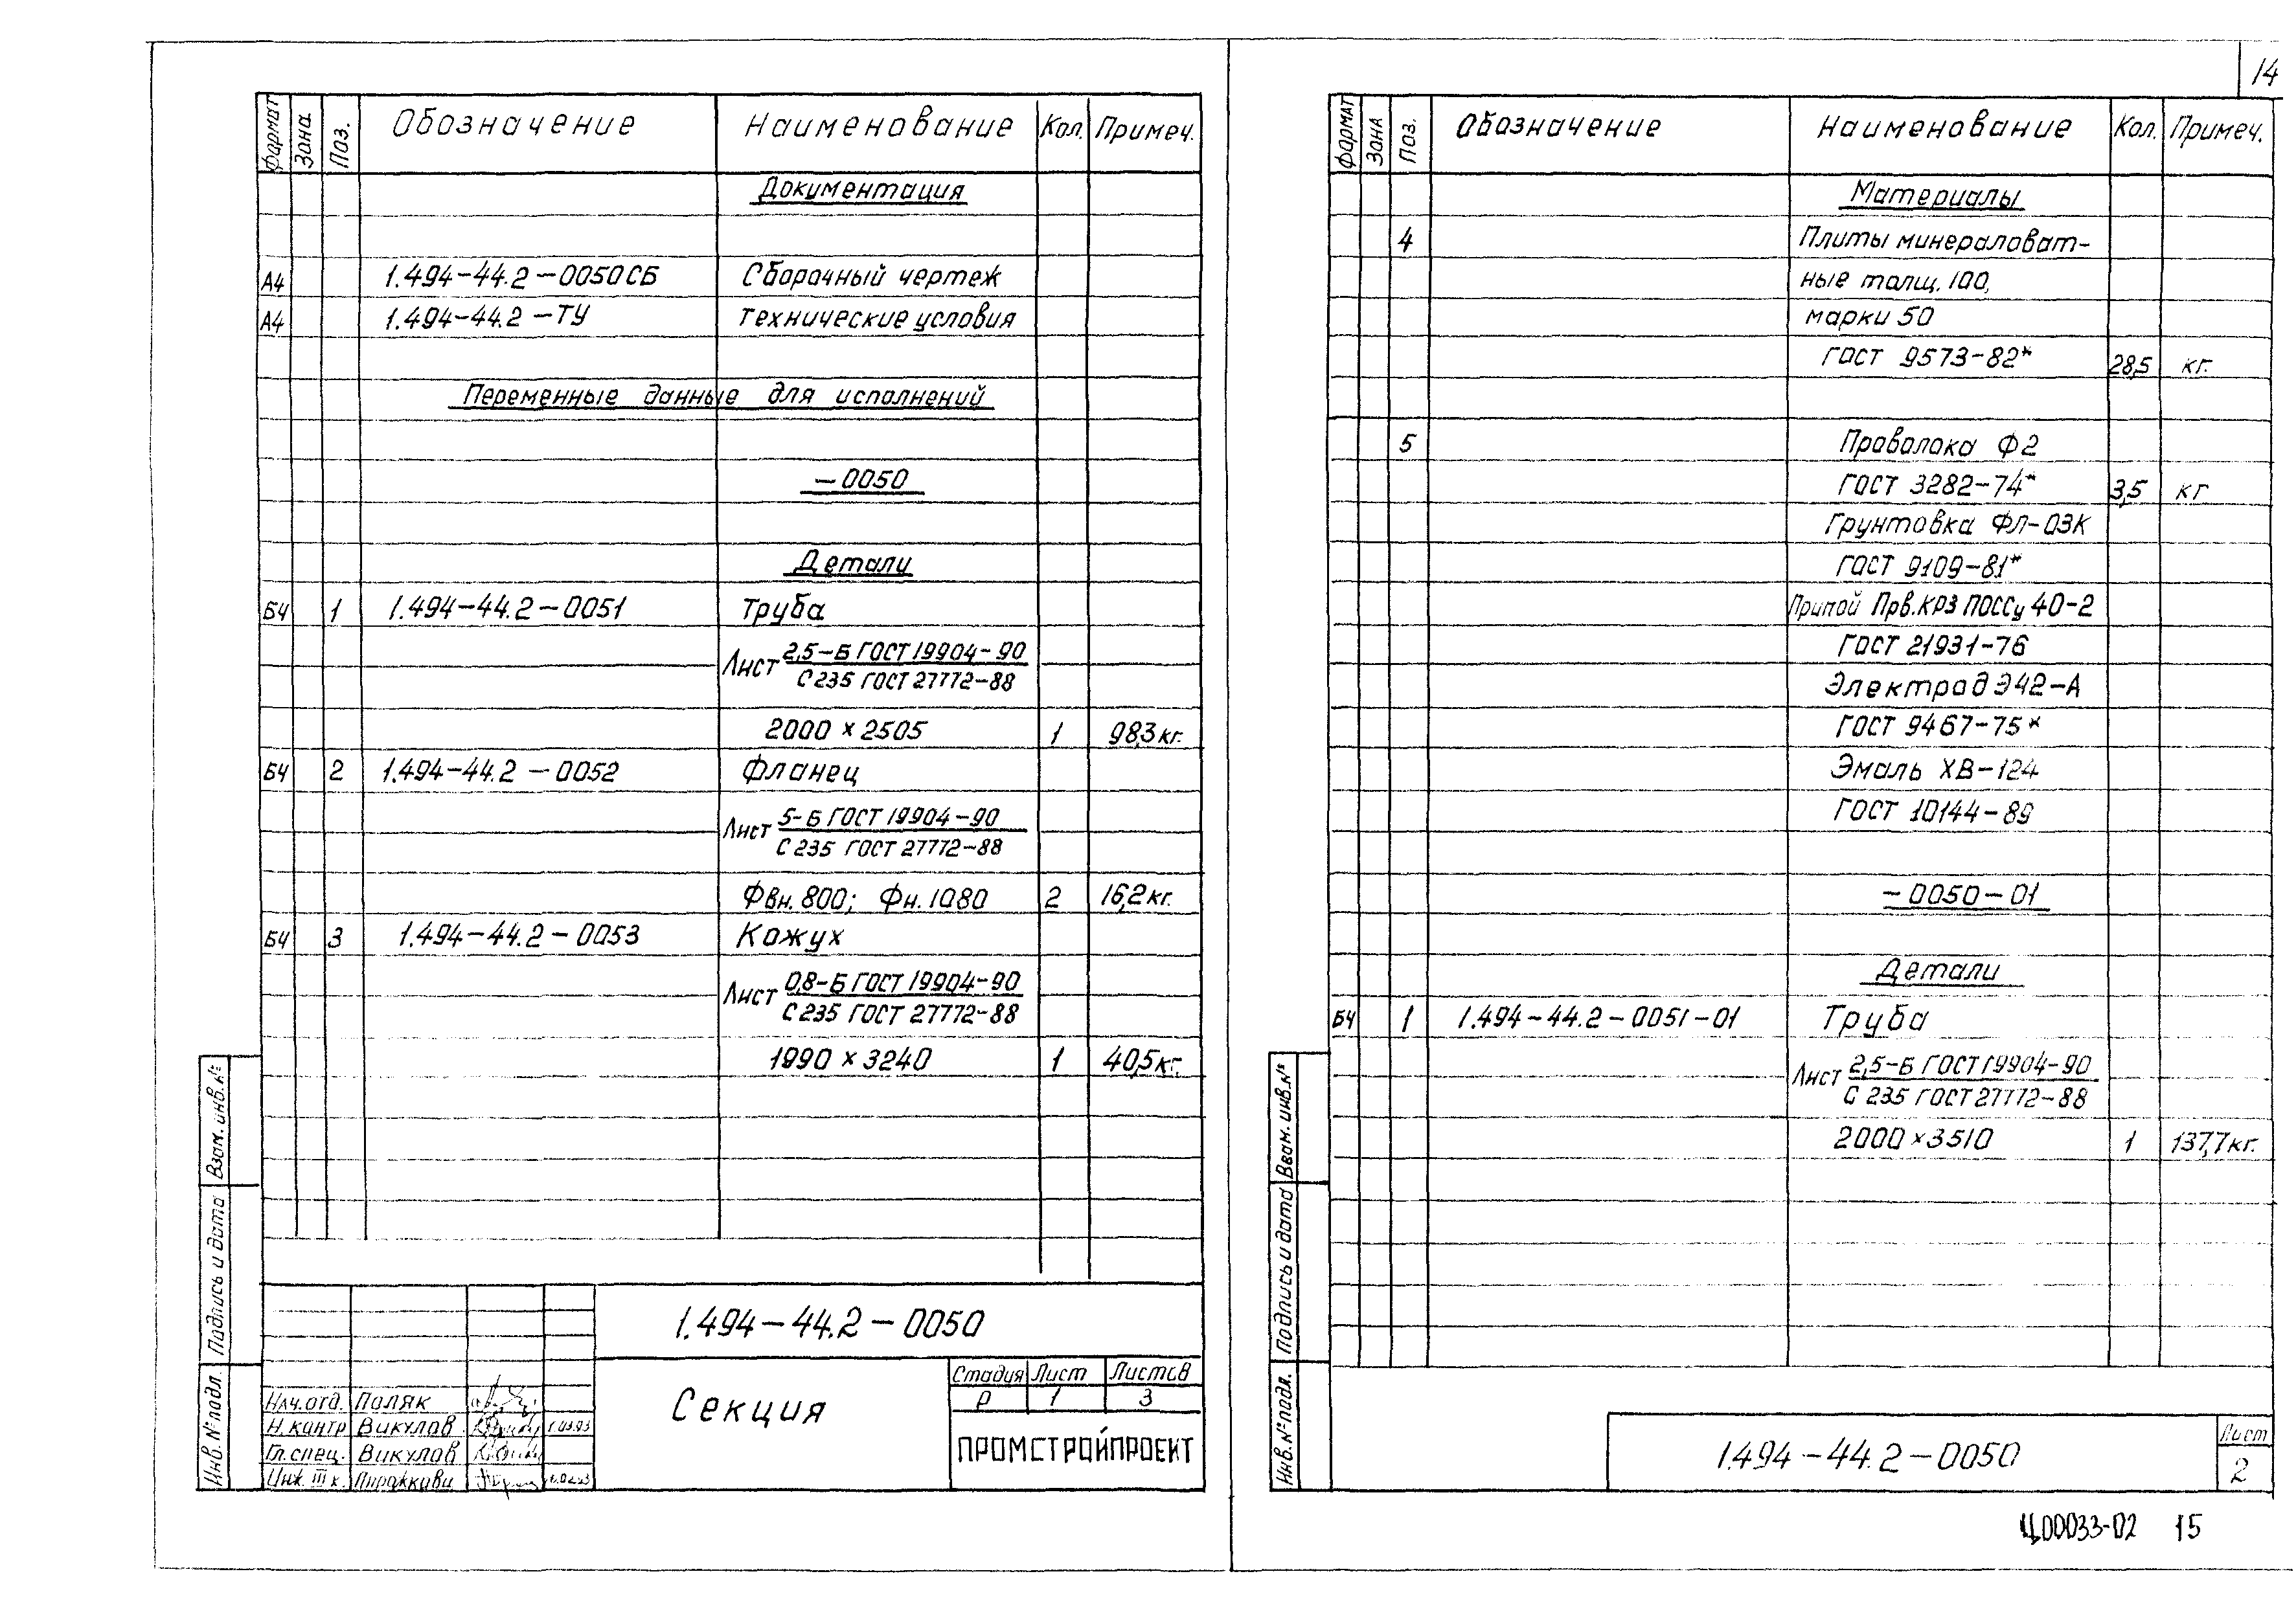 14
Формат Зона Поз. Обозначение Наименование Кол. Примеч.
Документация
А4 1.494-44.2-0050СБ Сборочный чертеж
А4 1.494-44.2-ТУ Технические условия
Переменные данные для исполнений
-0050
Детали
БЧ 1 1.494-44.2-0051 Труба
Лист 2,5-Б ГОСТ 19904-90
С235 ГОСТ 27772-88
2000 x 2505 1 98,3кг.
БЧ 2 1.494-44.2-0052 Фланец
Лист 5-Б ГОСТ 19904-90
С235 ГОСТ 27772-88
Фвн. 800; Фн. 1080 2 16,2кг.
БЧ 3 1.494-44.2-0053 Кожух
Лист 0,8-Б ГОСТ 19904-90
С235 ГОСТ 27772-88
1990 x 3240 1 40,5кг.
Взам. инв.№
Подпись и дата
Инв.№подл.
1.494-44.2-0050
Секция
Стадия Лист Листов
Р 1 3
ПРОМСТРОЙПРОЕКТ
Нач.отд. Поляк
Н.контр Викулов
Гл.спец. Викулов
Инж. III к.
Формат Зона Поз. Обозначение Наименование Кол. Примеч.
Материалы
4 Плиты минераловат-
ные толщ. 100,
марки 50
ГОСТ 9573-82* 28,5 кг.
5 Проволока Ф2
ГОСТ 3282-74* 3,5 кг
Грунтовка ФЛ-03К
ГОСТ 9109-81*
Припой Прв.КР3 ПОССу 40-2
ГОСТ 21931-76
Электрод Э42-А
ГОСТ 9467-75*
Эмаль ХВ-124
ГОСТ 10144-89
-0050-01
Детали
БЧ 1 1.494-44.2-0051-01 Труба
Лист 2,5-Б ГОСТ 19904-90
С 235 ГОСТ 27772-88
2000 x 3510 1 137,7кг.
Взам. инв.№
Подпись и дата
Инв.№подл.
1.494-44.2-0050
Лист
2
Ц00033-02 15